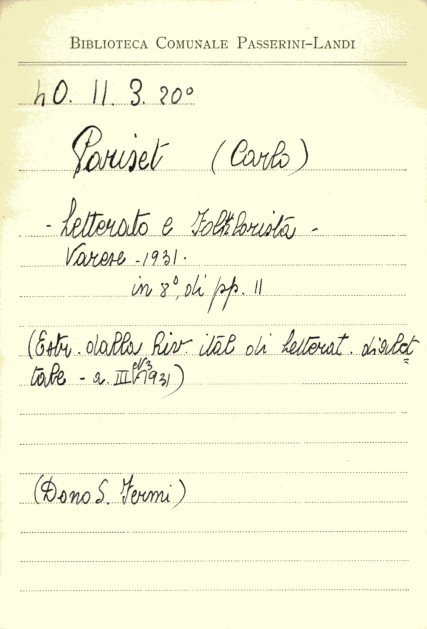 BIBLIOTECA COMUNALE PASSERINI-LANDI
40. 11. 3. 20°
Pariset (Carlo)
- Letterato e Folklorista -
Varese - 1931.
in 8°, di pp. 11
(Estr. dalla Riv. ital di letterat. dialet
tale - a. III N. 3 1931)
(Dono S. Fermi)